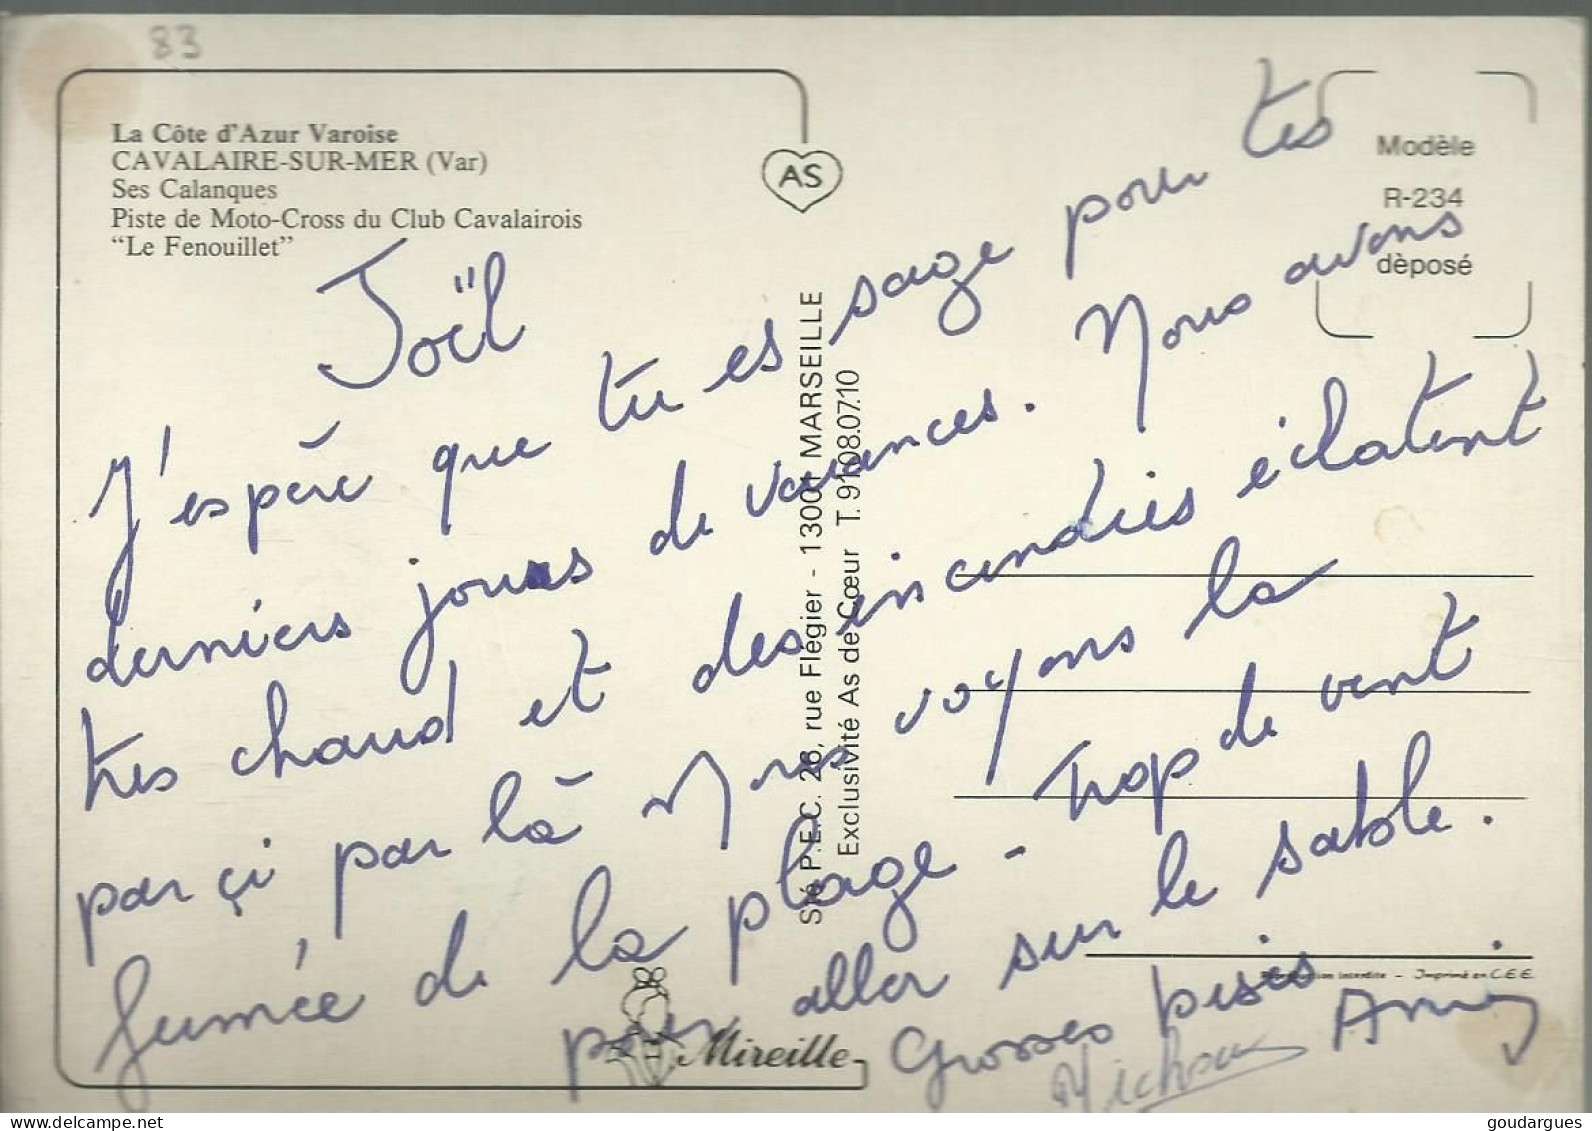 83
La Côte d'Azur Varoise
CAVALAIRE-SUR-MER (Var)
Ses Calanques
Piste de Moto-Cross du Club Cavalairois
"Le Fenouillet"
AS
Modèle
R-234
dèposé
Joël
J'espère que tu es sage pour tes
derniers jours de vacances. Nous avons
très chaud et des incendies éclatent
par çi par là Nous voyons la
fumée de la plage - Trop de vent
pour aller sur le sable.
Grosses bises
Sté P.E.C. 26, rue Flégier - 13001 MARSEILLE
Exclusivité As de Cœur T. 91.08.07.10
Reproduction interdite - Imprimé en C.E.E.
Mireille
delcampe.net
goudargues